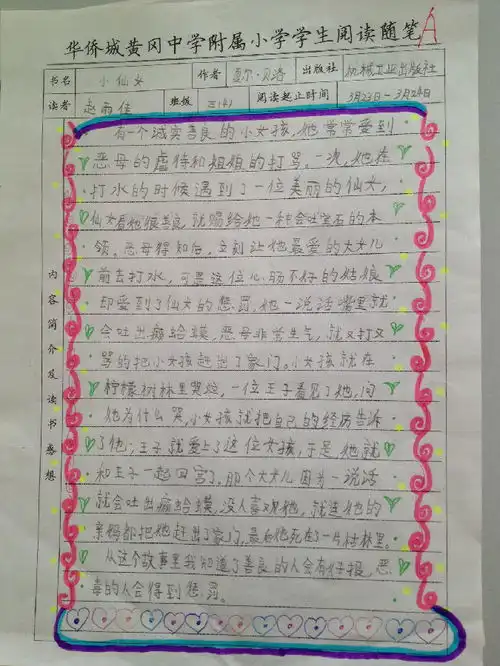 华侨城黄冈中学附属小学学生阅读随笔 A
书名 小仙女 作者 夏尔·贝洛 出版社 机械工业出版社
读者 赵雨佳 班级 三(4) 阅读起止时间 3月23日-3月24日
内容简介及读书感想
有一个诚实善良的小女孩,她常常受到
恶母的虐待和姐姐的打骂。一次,她在
打水的时候遇到了一位美丽的仙女,
仙女看她很善良,就赐给她一种会吐宝石的本
领。恶母得知后,立刻让她最爱的大女儿
前去打水,可是这位心肠不好的姑娘
却受到了仙女的惩罚。她一说话嘴里就
会吐出癞蛤蟆,恶母非常生气,就又打又
骂的把小女孩赶出了家门。小女孩就在
柠檬树林里哭泣,一位王子看见了她,问
她为什么哭,小女孩就把自己的经历告诉
了他,王子就爱上了这位女孩,于是她就
和王子一起回宫了。那个大女儿因为一说话
就会吐出癞蛤蟆,没人喜欢她,就连她的
亲妈都把她赶出了家门,最后她死在了一片树林里。
从这个故事里我知道了善良的人会有好报,恶
毒的人会得到惩罚。